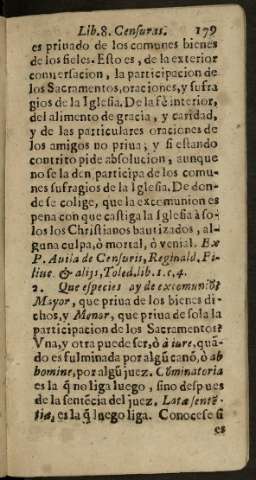 Lib.8. Censuras. 179
es priuado de los comunes bienes
de los fieles. Esto es, de la exterior
conuersacion, la participacion de
los Sacramentos, oraciones, y sufra
gios de la Iglesia. De la fè interior,
del alimento de gracia, y caridad,
y de las particulares oraciones de
los amigos no priua; y si estando
contrito pide absolucion, aunque
no se la den participa de los comu-
nes sufragios de la Iglesia. De don-
de se colige, que la excomunion es
pena con que castiga la Iglesia à so-
los los Christianos bautizados, al-
guna culpa, ò mortal, ò venial. Ex
P. Auila de Censuris, Reginald. Fi-
liuc. & alijs, Toled. lib. 1. c. 4.
2. Que especies ay de excomuniõ?
Mayor, que priua de los bienes di-
chos, y Menor, que priua de sola la
participacion de los Sacramentos?
Vna, y otra puede ser, ò à iure, quã-
do es fulminada por algũ canõ, ò ab
homine, por algũ juez. Cõminatoria
es la q̃ no liga luego, sino despues
de la sentẽcia del juez. Latæ sentẽ-
tiæ, es la q̃ luego liga. Conocese si
es